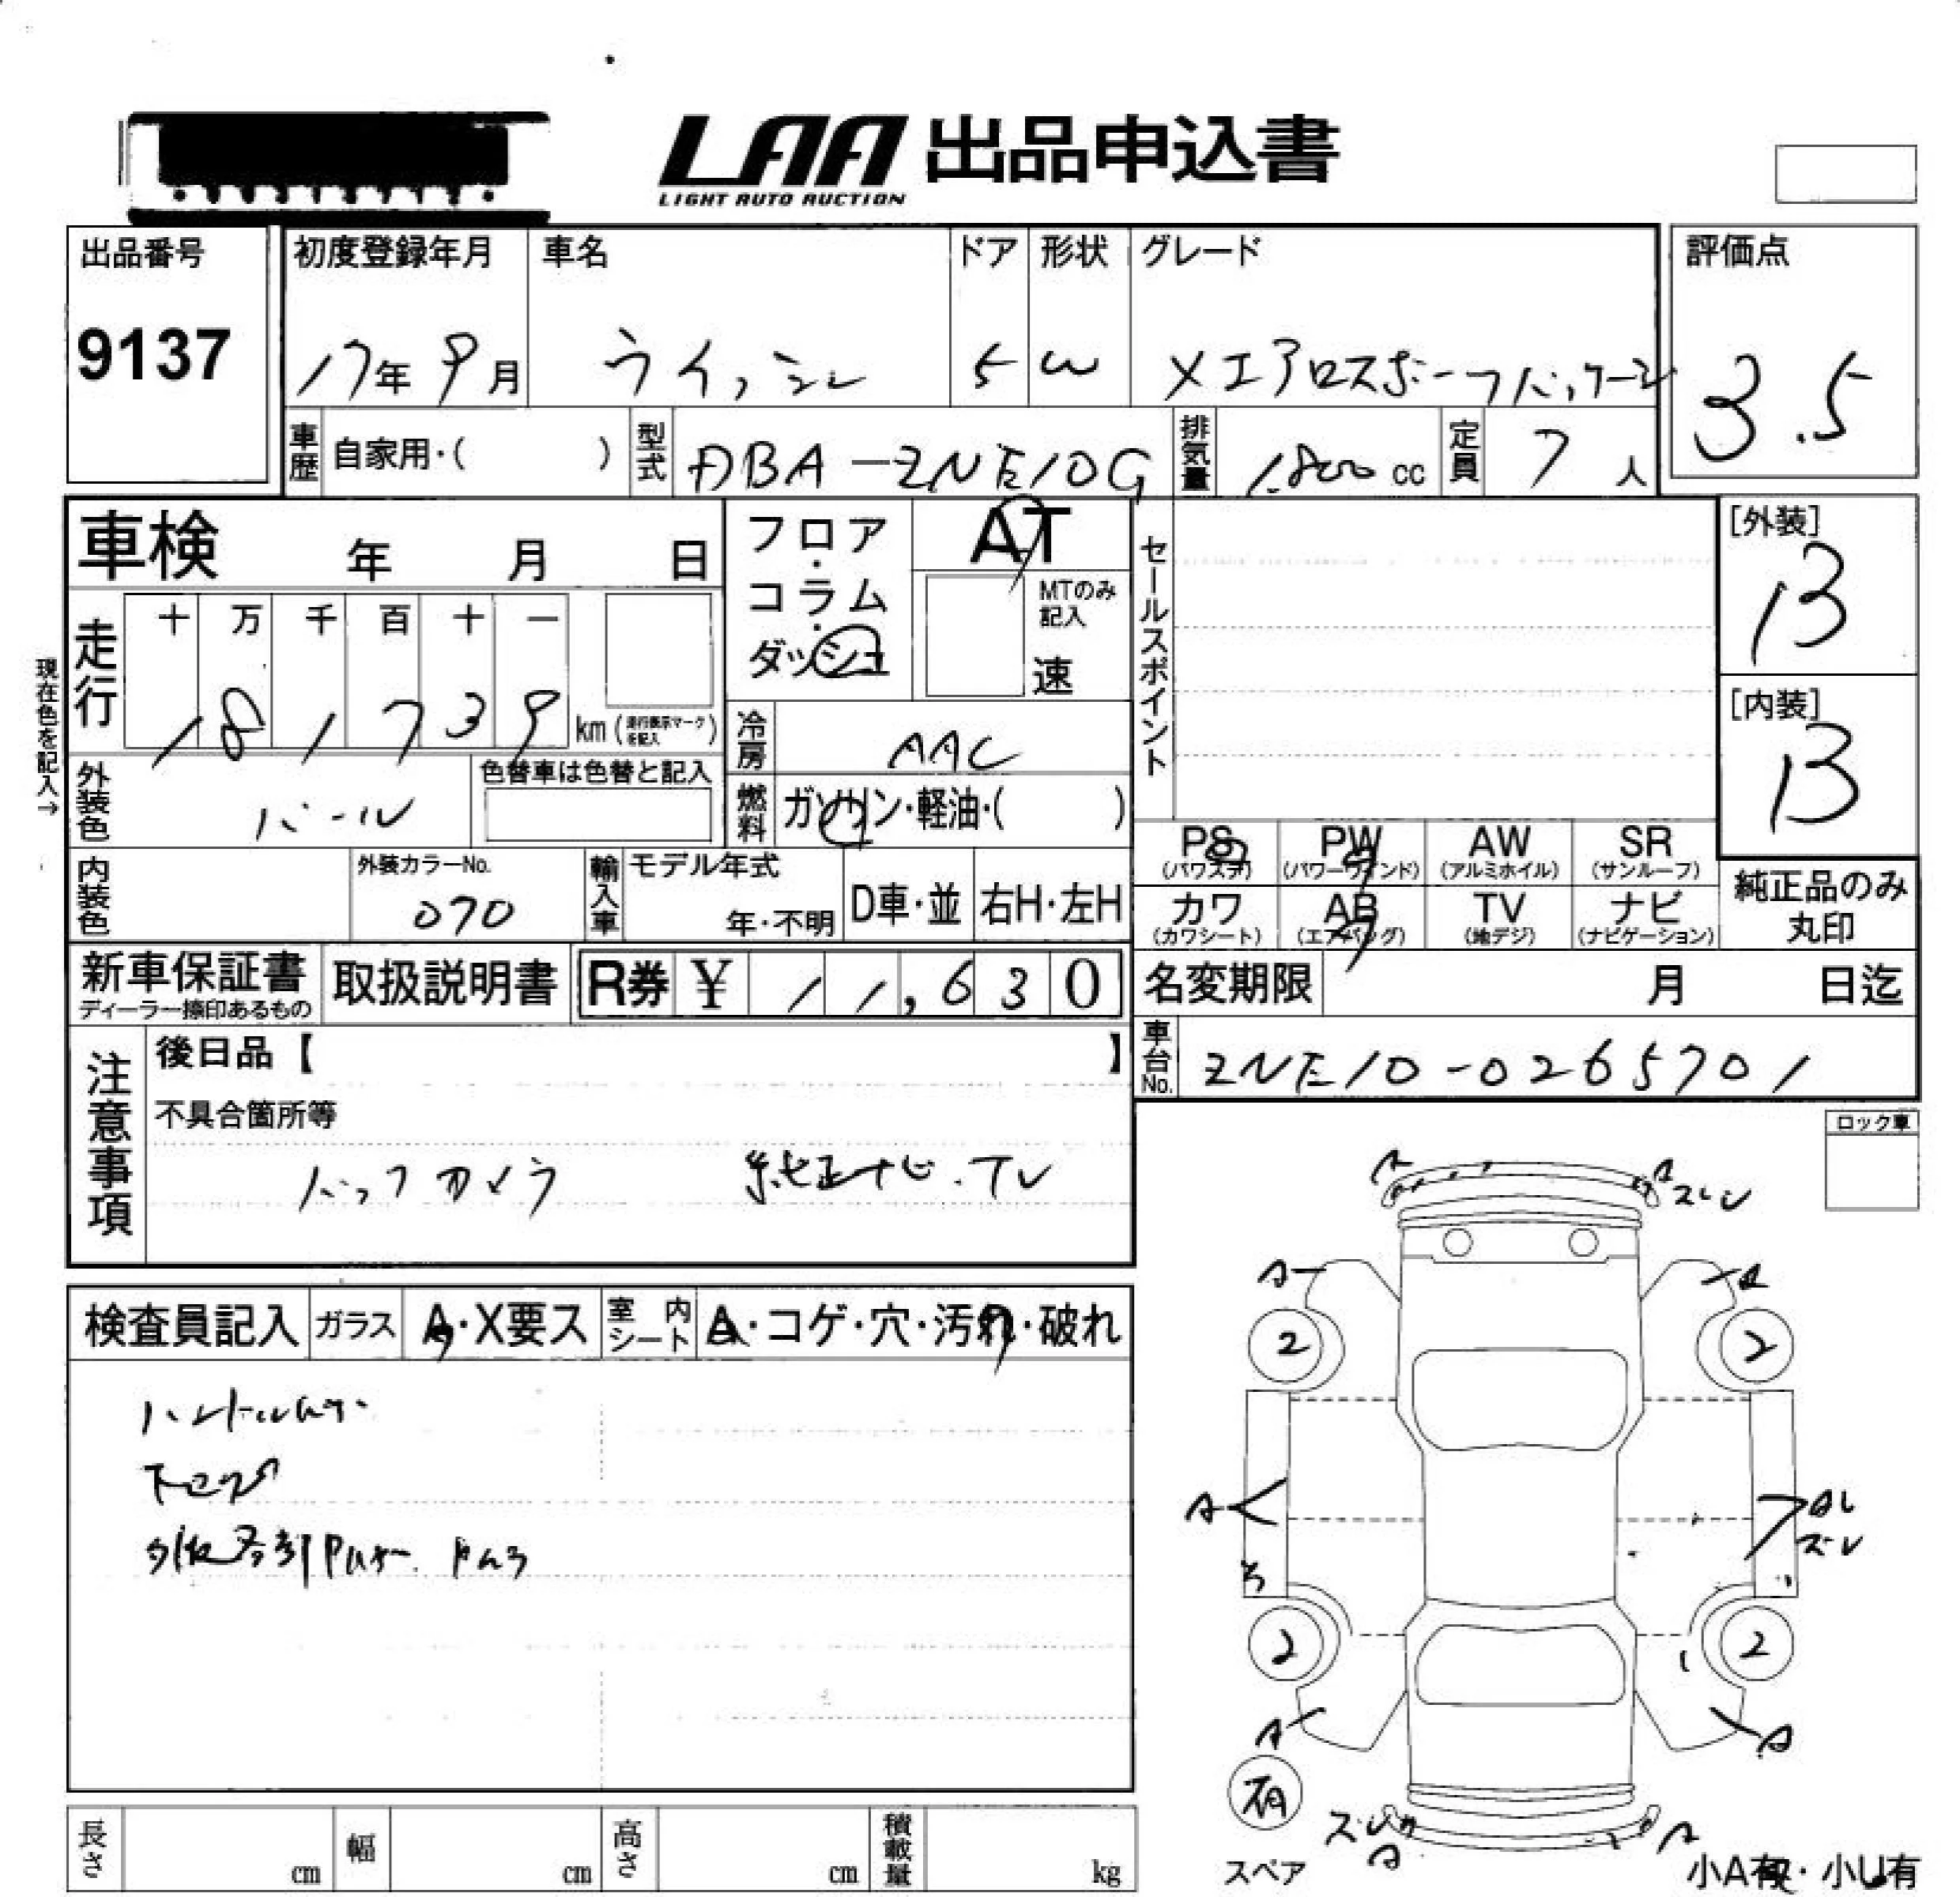 LAA 出品申込書
LIGHT AUTO AUCTION
出品番号
9137
初度登録年月
17年 9月
車名
ウイッシュ
ドア
5
形状
W
グレード
Xエアロスポーツパッケージ
評価点
3.5
車歴
自家用・( )
型式
DBA-ZNE10G
排気量
1,800 cc
定員
7 人
車検 年 月 日
フロア・コラム・ダッシュ
AT
MTのみ記入
速
セールスポイント
[外装]
B
[内装]
B
現在色を記入→
走行
十 万 千 百 十 一
1 8 1 7 3 9 km (走行表示マークを記入)
冷房
AAC
外装色
パール
色替車は色替と記入
燃料
ガソリン・軽油・( )
PS
(パワステ)
PW
(パワーウインド)
AW
(アルミホイル)
SR
(サンルーフ)
カワ
(カワシート)
AB
(エアバッグ)
TV
(地デジ)
ナビ
(ナビゲーション)
純正品のみ
丸印
内装色
外装カラーNo.
070
輸入車
モデル年式
年・不明
D車・並
右H・左H
新車保証書
ディーラー捺印あるもの
取扱説明書
R券 ¥ 11,630
名変期限 月 日迄
車台No.
ZNE10-0265701
注意事項
後日品【 】
不具合箇所等
バックカメラ 純正ナビ.TV
ロック車
検査員記入
ガラス
A・X要ス
室内シート
A・コゲ・穴・汚れ・破れ
A
A
スレ
A
A
2
2
A
スレ
2
2
A
A
有
スペア
スレ
A
A
小A有・小U有
長さ cm
幅 cm
高さ cm
積載量 kg